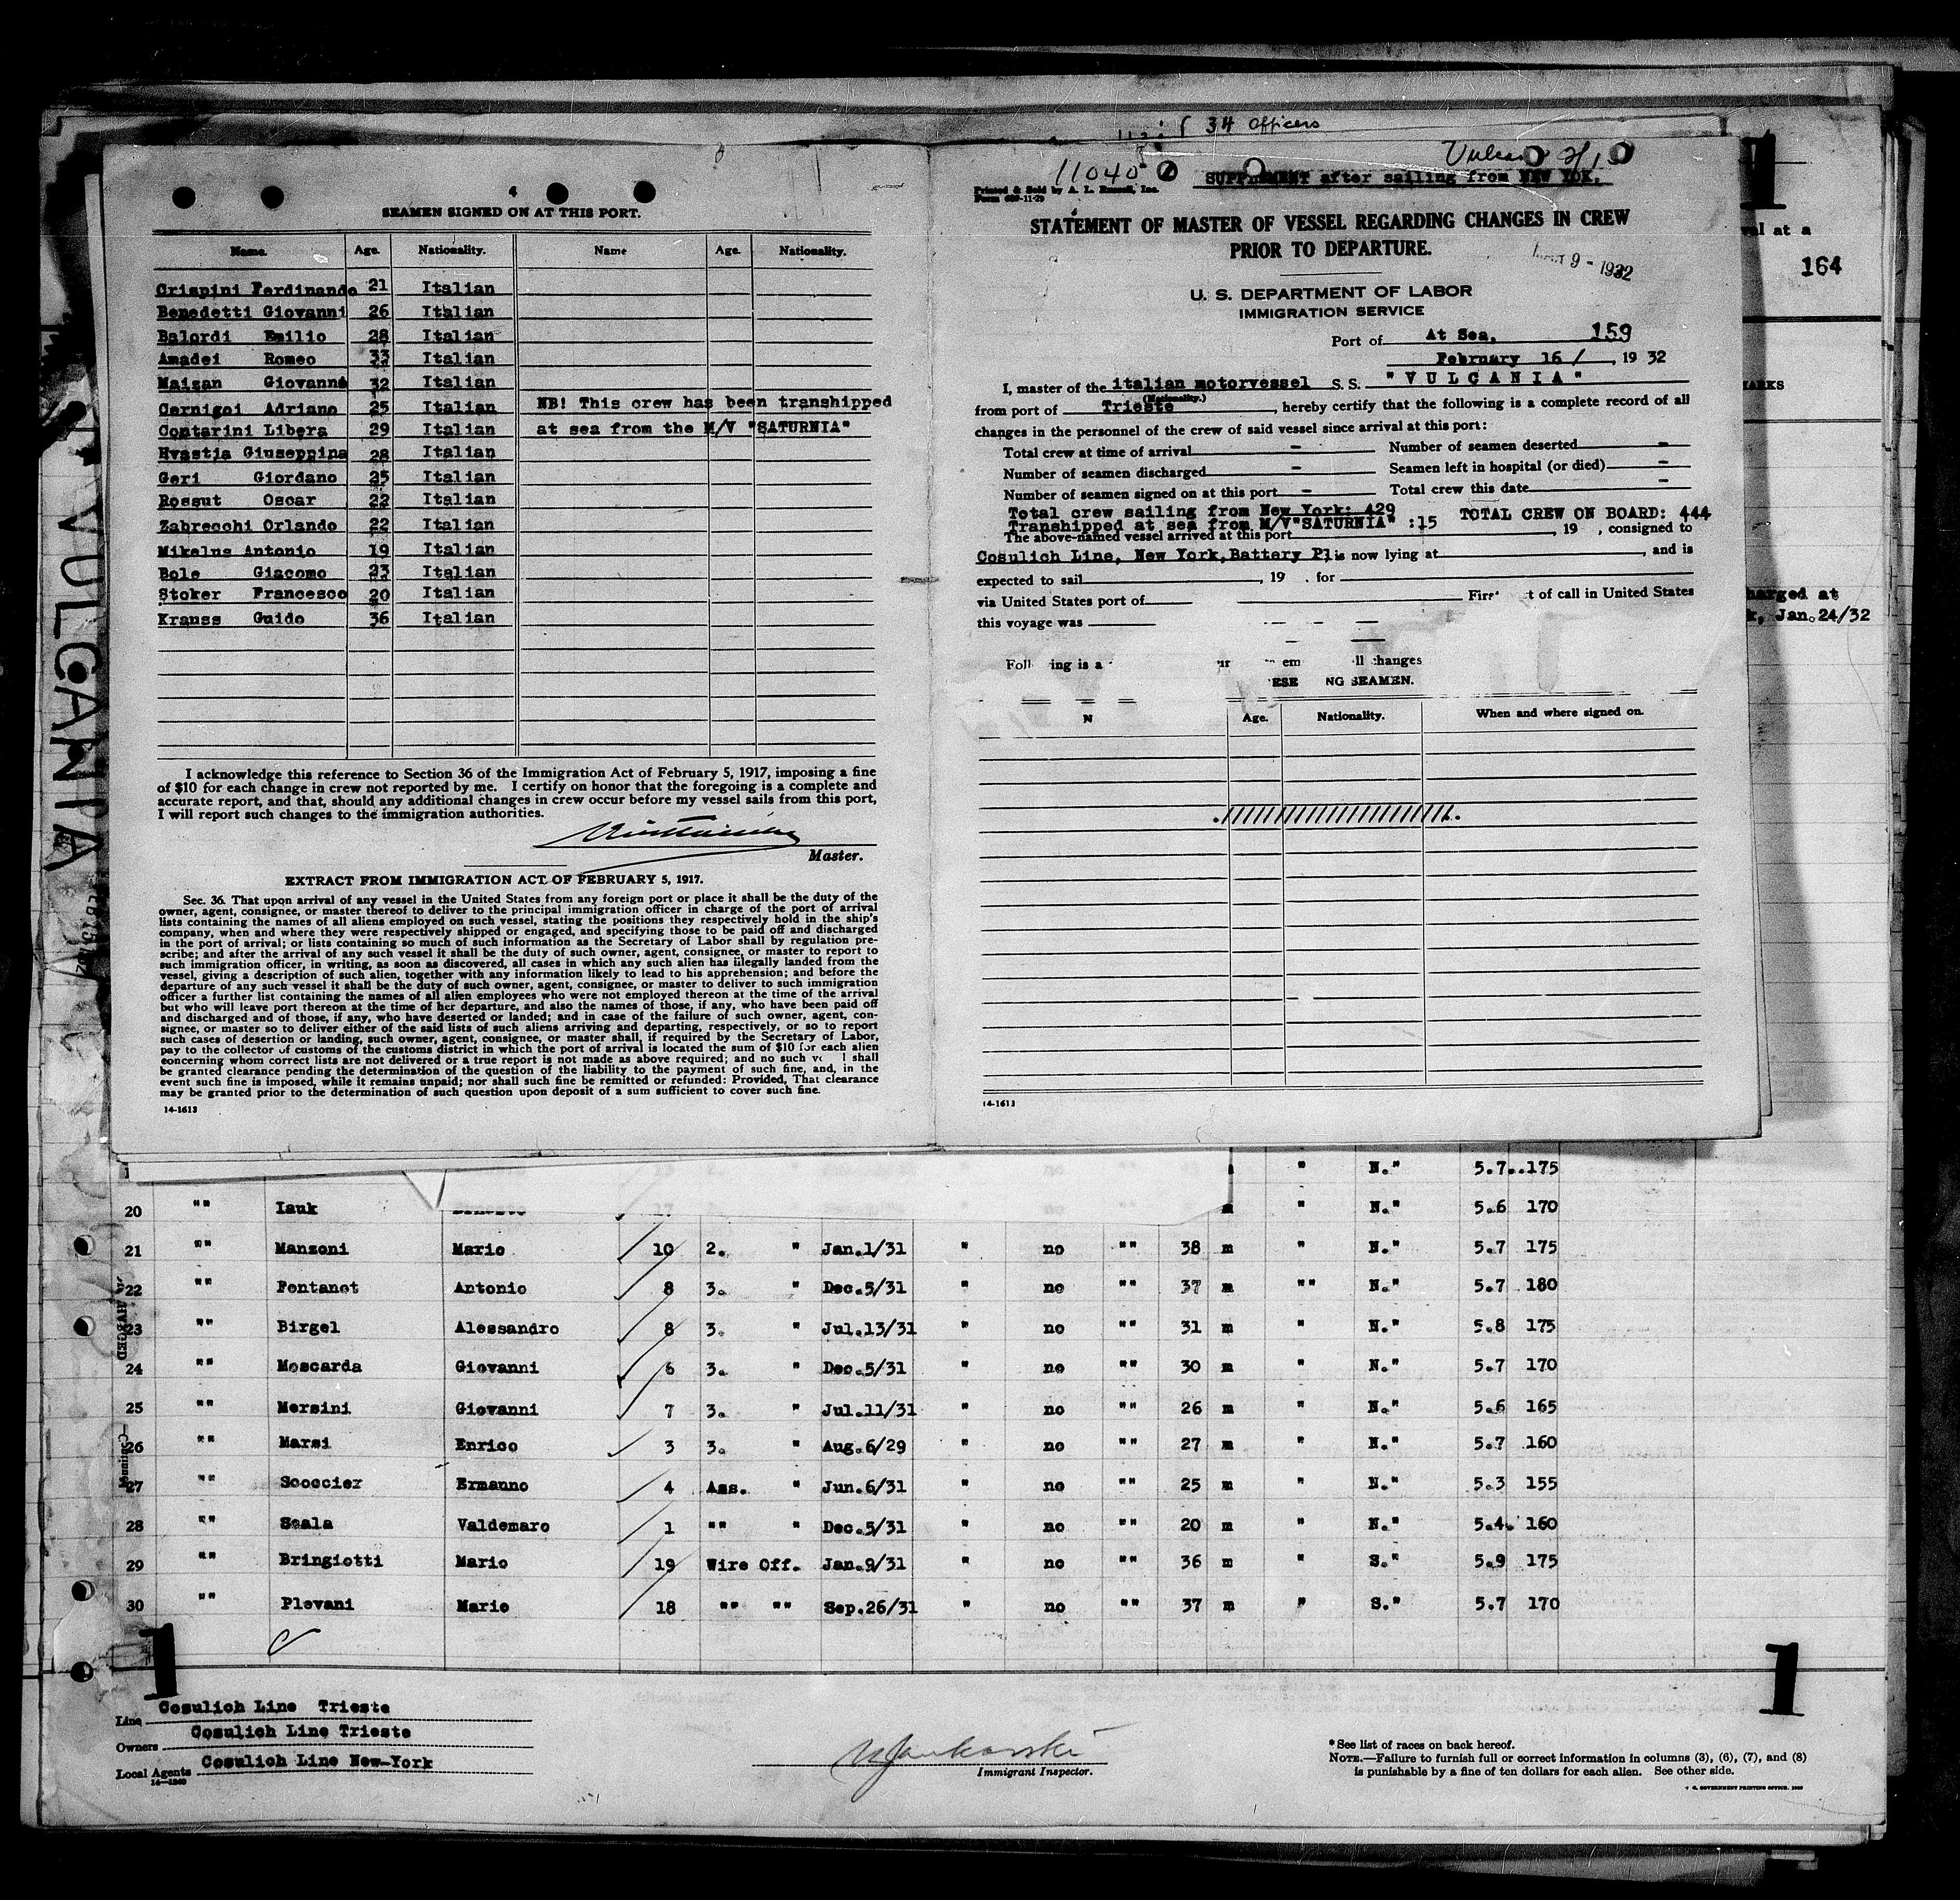 34 Officers
4
SEAMEN SIGNED ON AT THIS PORT.
Name. Age. Nationality. Name Age. Nationality.
Crispini Ferdinando 21 Italian
Benedetti Giovanni 26 Italian
Balordi Emilio 28 Italian
Amadei Romeo 33 Italian
Maizan Giovanni 32 Italian
Cernigoi Adriano 25 Italian NB! This crew has been transhipped
Contarini Libera 29 Italian at sea from the M/V "SATURNIA"
Hvastia Giuseppina 28 Italian
Geri Giordano 25 Italian
Rossut Oscar 22 Italian
Zabrecchi Orlando 22 Italian
Mikelus Antonio 19 Italian
Bole Giacomo 23 Italian
Stoker Francesco 20 Italian
Krauss Guido 36 Italian
I acknowledge this reference to Section 36 of the Immigration Act of February 5, 1917, imposing a fine
of $10 for each change in crew not reported by me. I certify on honor that the foregoing is a complete and
accurate report, and that, should any additional changes in crew occur before my vessel sails from this port,
I will report such changes to the immigration authorities.
Master.
EXTRACT FROM IMMIGRATION ACT OF FEBRUARY 5, 1917.
Sec. 36. That upon arrival of any vessel in the United States from any foreign port or place it shall be the duty of the
owner, agent, consignee, or master thereof to deliver to the principal immigration officer in charge of the port of arrival
lists containing the names of all aliens employed on such vessel, stating the positions they respectively hold in the ship's
company, when and where they were respectively shipped or engaged, and specifying those to be paid off and discharged
in the port of arrival; or lists containing so much of such information as the Secretary of Labor shall by regulation pre-
scribe; and after the arrival of any such vessel it shall be the duty of such owner, agent, consignee, or master to report to
such immigration officer, in writing, as soon as discovered, all cases in which any such alien has illegally landed from the
vessel, giving a description of such alien, together with any information likely to lead to his apprehension; and before the
departure of any such vessel it shall be the duty of such owner, agent, consignee, or master to deliver to such immigration
officer a further list containing the names of all alien employees who were not employed thereon at the time of the arrival
but who will leave port thereon at the time of her departure, and also the names of those, if any, who have been paid off
and discharged and of those, if any, who have deserted or landed; and in case of the failure of such owner, agent, con-
signee, or master so to deliver either of the said lists of such aliens arriving and departing, respectively, or so to report
such cases of desertion or landing, such owner, agent, consignee, or master shall, if required by the Secretary of Labor,
pay to the collector of customs of the customs district in which the port of arrival is located the sum of $10 for each alien
concerning whom correct lists are not delivered or a true report is not made as above required; and no such ve l shall
be granted clearance pending the determination of the question of the liability to the payment of such fine, and, in the
event such fine is imposed, while it remains unpaid; nor shall such fine be remitted or refunded: Provided, That clearance
may be granted prior to the determination of such question upon deposit of a sum sufficient to cover such fine.
14-1613
11040
Printed & Sold by A. L. Russell, Inc.
SUPPLEMENT after sailing from NEW YOK.
STATEMENT OF MASTER OF VESSEL REGARDING CHANGES IN CREW
PRIOR TO DEPARTURE.
9 - 1932
U. S. DEPARTMENT OF LABOR
IMMIGRATION SERVICE
Port of At Sea, 159
February 16 / , 19 32
I, master of the italian motorvessel S. S. "VULCANIA"
(Nationality.)
from port of Trieste , hereby certify that the following is a complete record of all
changes in the personnel of the crew of said vessel since arrival at this port:
Total crew at time of arrival - Number of seamen deserted -
Number of seamen discharged - Seamen left in hospital (or died) -
Number of seamen signed on at this port - Total crew this date -
Total crew sailing from New York: 429 TOTAL CREW ON BOARD: 444
Transhipped at sea from M/V"SATURNIA" :15
The above-named vessel arrived at this port , 19 , consigned to
Cosulich Line, New York,Battery Pl; is now lying at , and is
expected to sail , 19 . for
via United States port of Firs t of call in United States
this voyage was
Foll ing is a ur em ll changes
ESE NG SEAMEN.
N Age. Nationality. When and where signed on.
14-1613
1
val at a
164
MARKS
harged at
k, Jan.24/32
VULCANIA
" N." 5.7 175
20 "" Iauk " N." 5.6 170
21 "" Manzoni Mario 10 2. " Jan.1/31 " no "" 38 m " N." 5.7 175
22 "" Fontanot Antonio 8 3. " Dec.5/31 " no "" 37 m "" N." 5.7 180
23 "" Birgel Alessandro 8 3. " Jul.13/31 " no "" 31 m " N." 5.8 175
24 "" Moscarda Giovanni 6 3. " Dec.5/31 " no "" 30 m " N." 5.7 170
25 "" Mersini Giovanni 7 3. " Jul.11/31 " no "" 26 m " N." 5.6 165
26 "" Marsi Enrico 3 3. " Aug.6/29 " no "" 27 m " N." 5.7 160
27 "" Scoccier Ermanno 4 Ass. " Jun.6/31 " no "" 25 m " N." 5.3 155
28 "" Scala Valdemaro 1 "" " Dec.5/31 " no "" 20 m " N." 5.4 160
29 "" Bringiotti Mario 19 Wire Off. Jan.9/31 " no "" 36 m " S." 5.9 175
30 "" Plevani Mario 18 "" "" Sep.26/31 " no "" 37 m " S." 5.7 170
1 1
Line Cosulich Line Trieste
Owners Cosulich Line Trieste
Local Agents Cosulich Line New-York
Immigrant Inspector.
* See list of races on back hereof.
NOTE.—Failure to furnish full or correct information in columns (3), (6), (7), and (8)
is punishable by a fine of ten dollars for each alien. See other side.